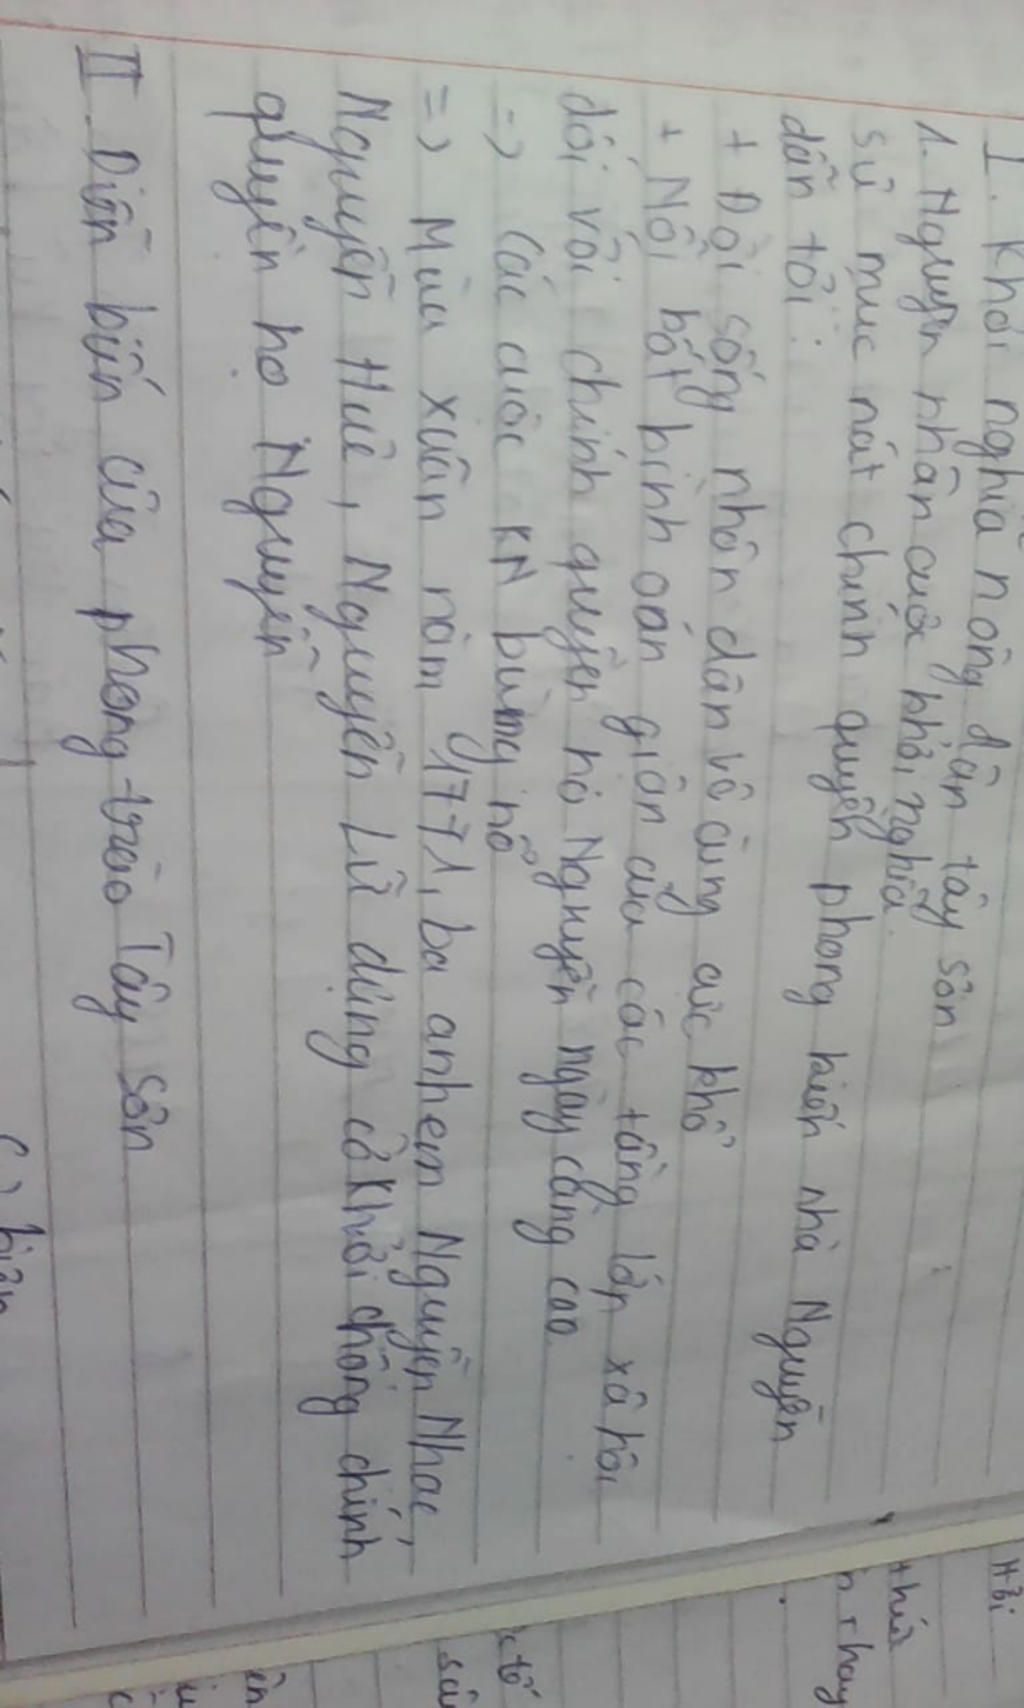 I. Khởi nghĩa nông dân tây sơn
1. Nguyên nhân cuộc khởi nghĩa.
sử mục nát chính quyền phong kiến nhà Nguyễn
dẫn tới:
+ Đời sống nhân dân vô cùng cực khổ
+ Nỗi bất bình oán giận của các tầng lớp xã hội
đối với chính quyền họ Nguyễn ngày càng cao.
=> Các cuộc KN bùng nổ
=> Mùa xuân năm 1771, ba anh em Nguyễn Nhạc,
Nguyễn Huệ, Nguyễn Lữ dựng cờ khởi chống chính
quyền họ Nguyễn
II. Diễn biến của phong trào Tây Sơn